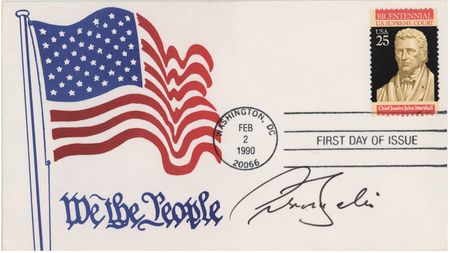 BICENTENNIAL
U.S. SUPREME COURT
USA
25
Chief Justice John Marshall
WASHINGTON, DC
FEB
2
1990
20066
FIRST DAY OF ISSUE
We the People